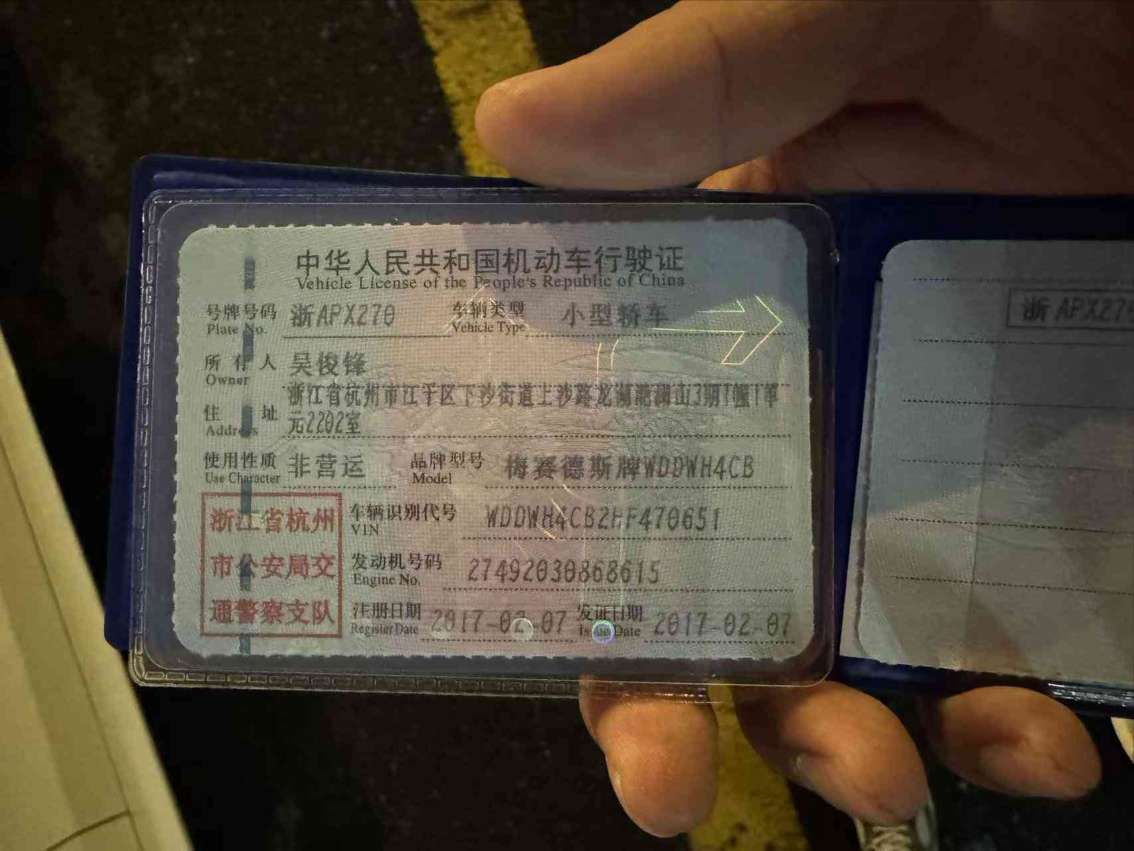 中华人民共和国机动车行驶证
Vehicle License of the People's Republic of China
号牌号码 浙APX270 车辆类型 小型轿车
Plate No. Vehicle Type
所有人 吴俊锋
Owner
住址 浙江省杭州市江干区下沙街道上沙路龙湖滟澜山3期1幢1单
Address 元2202室
使用性质 非营运 品牌型号 梅赛德斯牌WDDWH4CB
Use Character Model
浙江省杭州
市公安局交
通警察支队
车辆识别代号 WDDWH4CB2HF470651
VIN
发动机号码 27492030868615
Engine No.
注册日期 2017-02-07 发证日期 2017-02-07
Register Date Issue Date
浙APX270